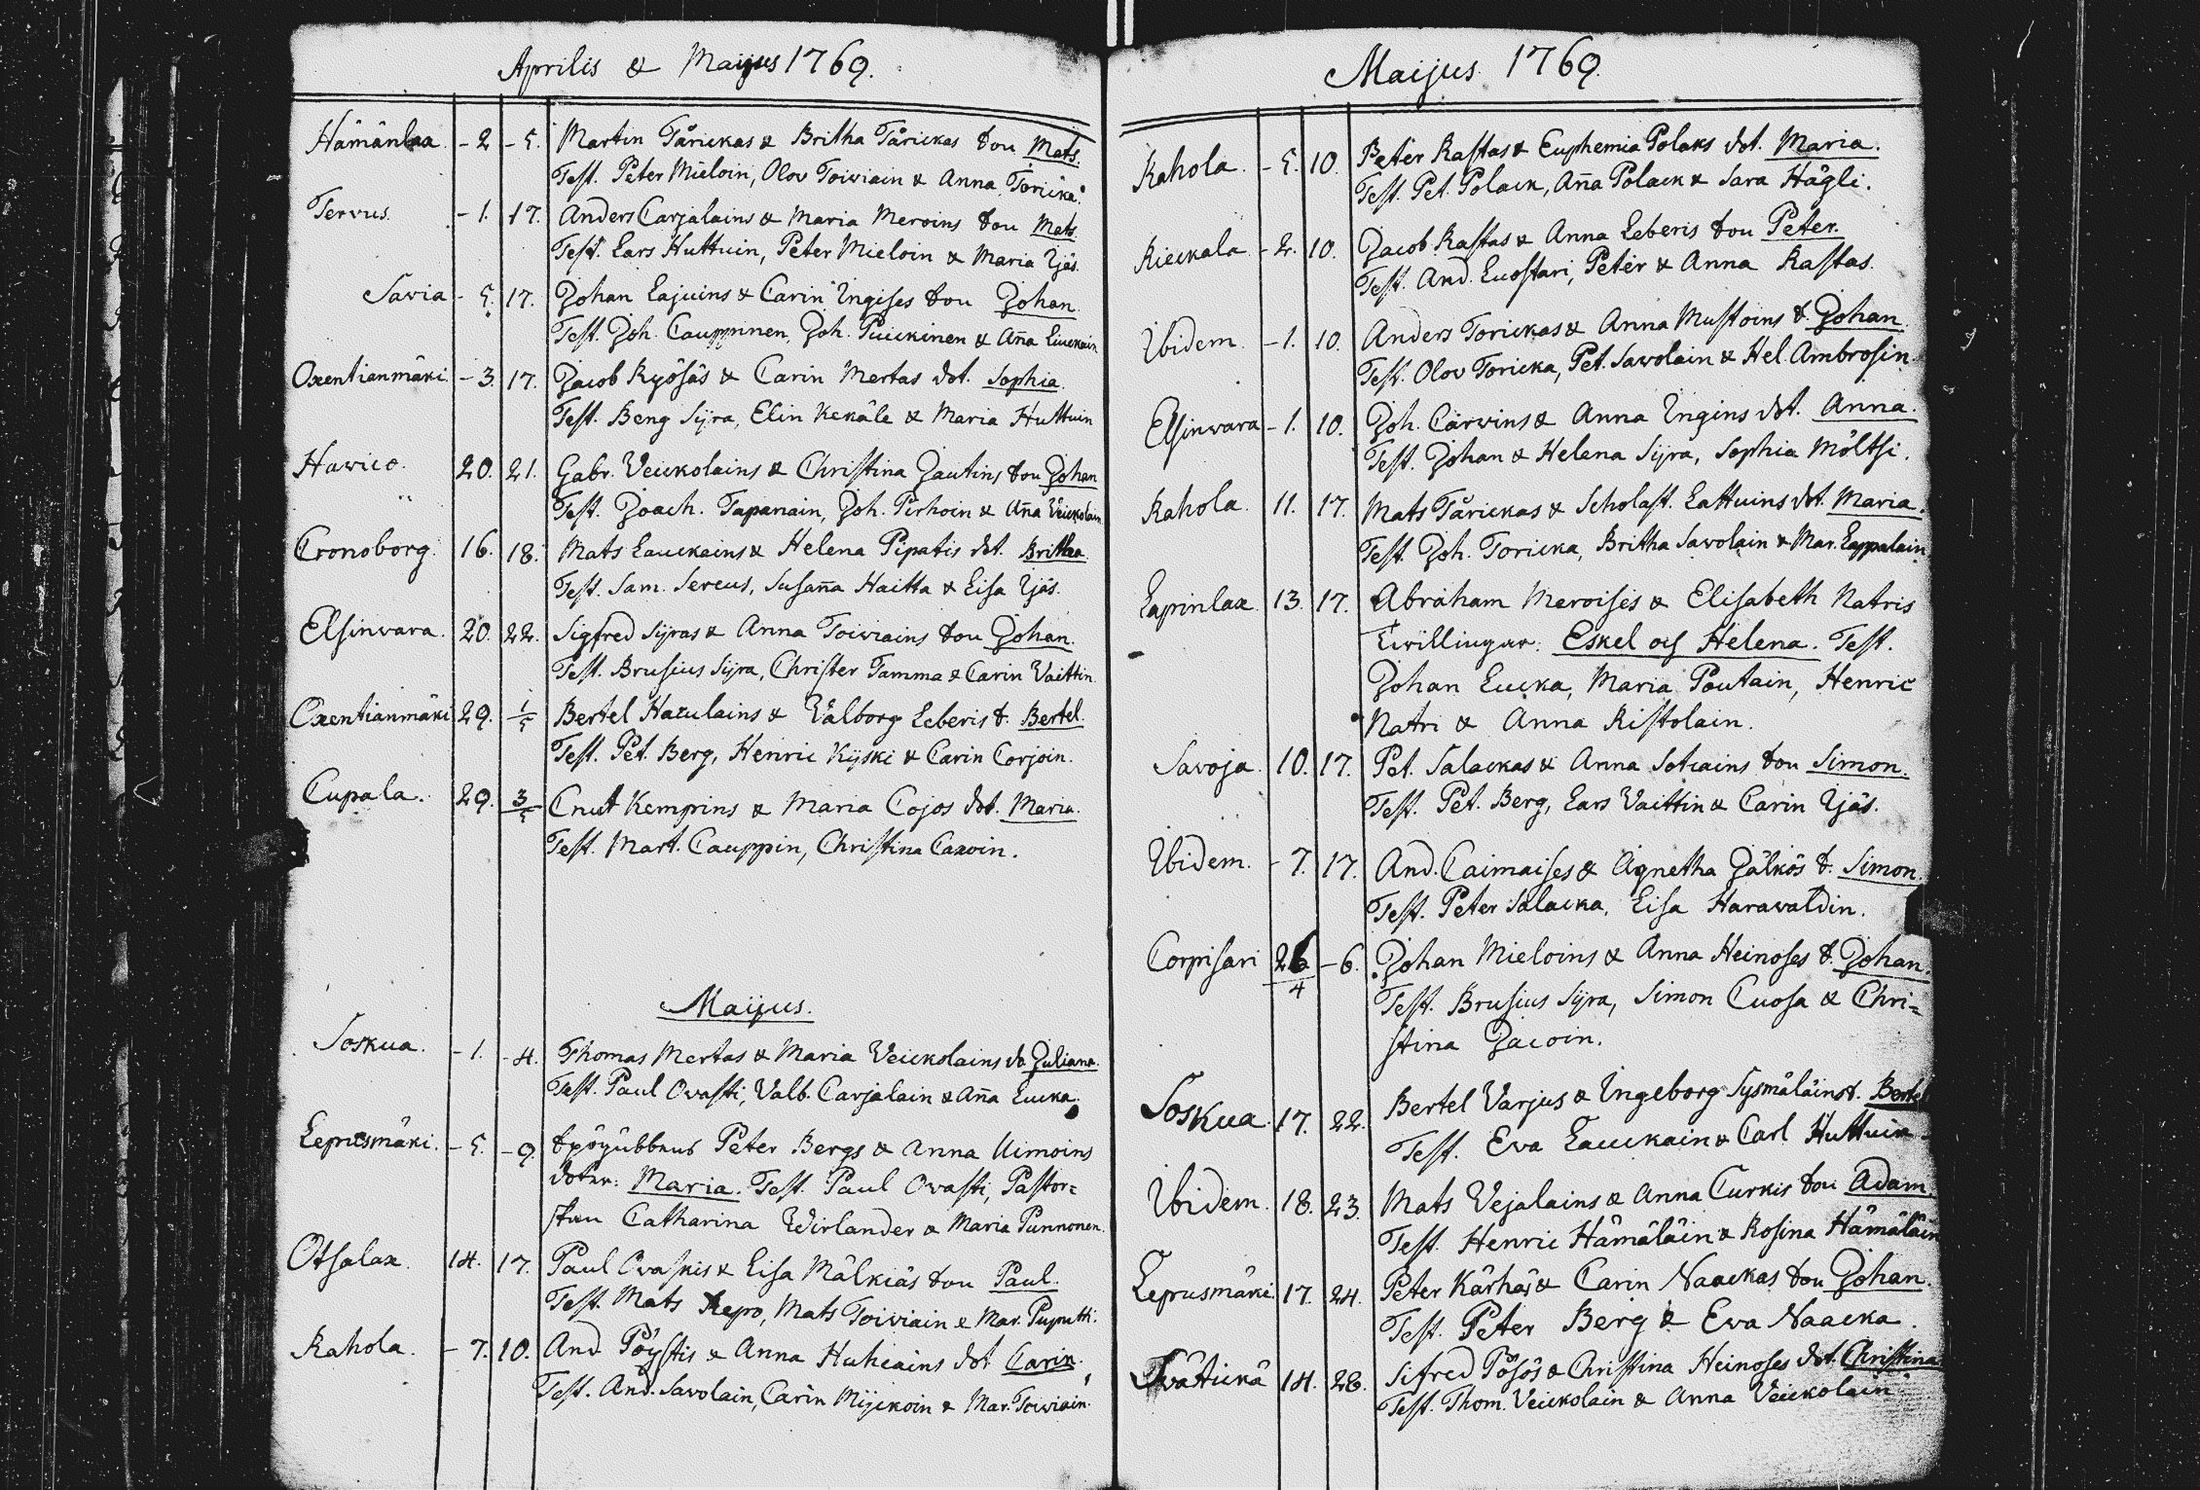 Aprilis & Maijus 1769.
Hämänlax. - 2 - 5. Martin Tårickas & Britha Tårickas Son Mats.
Test. Peter Mieloin, Olov Toiviain & Anna Toricka.
Tervus. - 1. 17. Anders Carjalains & Maria Meroins Son Mats.
Test. Lars Huttuin, Peter Mieloin & Maria Ijäs.
Savia - 5. 17. Johan Lajuins & Carin Ingises Son Johan.
Test. Joh. Cauppinen, Joh. Puickinen & Aña Liuckain
Oxentianmäki. - 3. 17. Jacob Kyösäs & Carin Mertas dot. Sophia.
Test. Beng Sijra, Elin Kekäle & Maria Huttuin
Havico. 20. 21. Gabr. Veickolains & Christina Jautins Son Johan
Test. Joach. Tapanain, Joh. Pirhoin & Aña Veickolain
Cronoborg. 16. 18. Mats Lauckains & Helena Pipatis dot. Britha
Test. Sam. Sereus, Susaña Haitta & Lisa Ijäs.
Elsinvara. 20. 22. Sigfred Sijras & Anna Toiviains Son Johan.
Test. Brusius Sijra, Christer Tamma & Carin Vaittin
Oxentianmäki 29. 1/5 Bertel Hazulains & Valborg Leberis S. Bertel.
Test. Pet. Berg, Henric Kijski & Carin Corjoin.
Cupala. 29. 3/5 Cnut Kemprins & Maria Cojos dot. Maria.
Test. Mart. Cauppin, Christina Caxoin.
Maijus.
Soskua. - 1. - 4. Thomas Mertas & Maria Veickolains do Juliana.
Test. Paul Ovasti, Valb. Carjalain & Aña Lucka.
Leprusmäki. - 5. - 9. Peter Bergs & Anna Uimoins
dotter: Maria. Test. Paul Ovasti, Pastor=
skan Catharina Wirlander & Maria Punnonen.
Otsalax. 14. 17. Paul Ovaskis & Lisa Mälkiäs Son Paul.
Test. Mats Repo, Mats Toiviain & Mar. Puputti.
Rahola. - 7. 10. And. Pöystis & Anna Huhcains dot Carin.
Test. And. Savolain, Carin Mijikoin & Mar. Toiviain.
Maijus. 1769.
Rahola. - 5. 10. Peter Rastas & Euphemia Polaks dot. Maria.
Test. Pet. Polack, Aña Polack & Sara Hägli.
Rieckala - 2. 10. Jacob Rastas & Anna Leberis Son Peter.
Test. And. Luostari, Peter & Anna Rastas.
Ibidem. - 1. 10. Anders Torickas & Anna Mustoins S. Johan.
Test. Olov Toricka, Pet. Savolain & Hel. Ambrosin.
Elsinvara - 1. 10. Joh. Carvins & Anna Ingins dot. Anna.
Test. Johan & Helena Sijra, Sophia Möltsi.
Rahola. 11. 17. Mats Tårickas & Scholast. Lattuins dot. Maria.
Test. Joh. Toricka, Britha Savolain & Mar. Lappalain.
Lapinlax. 13. 17. Abraham Meroises & Elisabeth Natris
Twillingar: Eskel och Helena. Test.
Johan Lucka, Maria Poutain, Henric
Natri & Anna Ristolain.
Savoja. 10. 17. Pet. Salackas & Anna Sotcains Son Simon.
Test. Pet. Berg, Lars Vaittin & Carin Ijäs.
Ibidem. - 7. 17. And. Caimaises & Agnetha Jälkös S. Simon.
Test. Peter Salacka, Lisa Haravaldin.
Corpisari 26/4 - 6. Johan Mieloins & Anna Heinoses S. Johan.
Test. Brusius Sijra, Simon Cuosa & Chri=
stina Jacoin.
Soskua. 17. 22. Bertel Varjus & Ingeborg Sysmäläins S. Bertel
Test. Eva Lauckain & Carl Huttuin.
Ibidem. 18. 23. Mats Vejalains & Anna Curkis Son Adam.
Test. Henric Hämäläin & Rosina Hämäläin
Leprusmäki 17. 24. Peter Kärhäs & Carin Naackas Son Johan.
Test. Peter Berg & Eva Naacka.
14. 28. Sifred Pösös & Christina Heinoses dot. Christina
Test. Thom. Veickolain & Anna Veickolain.